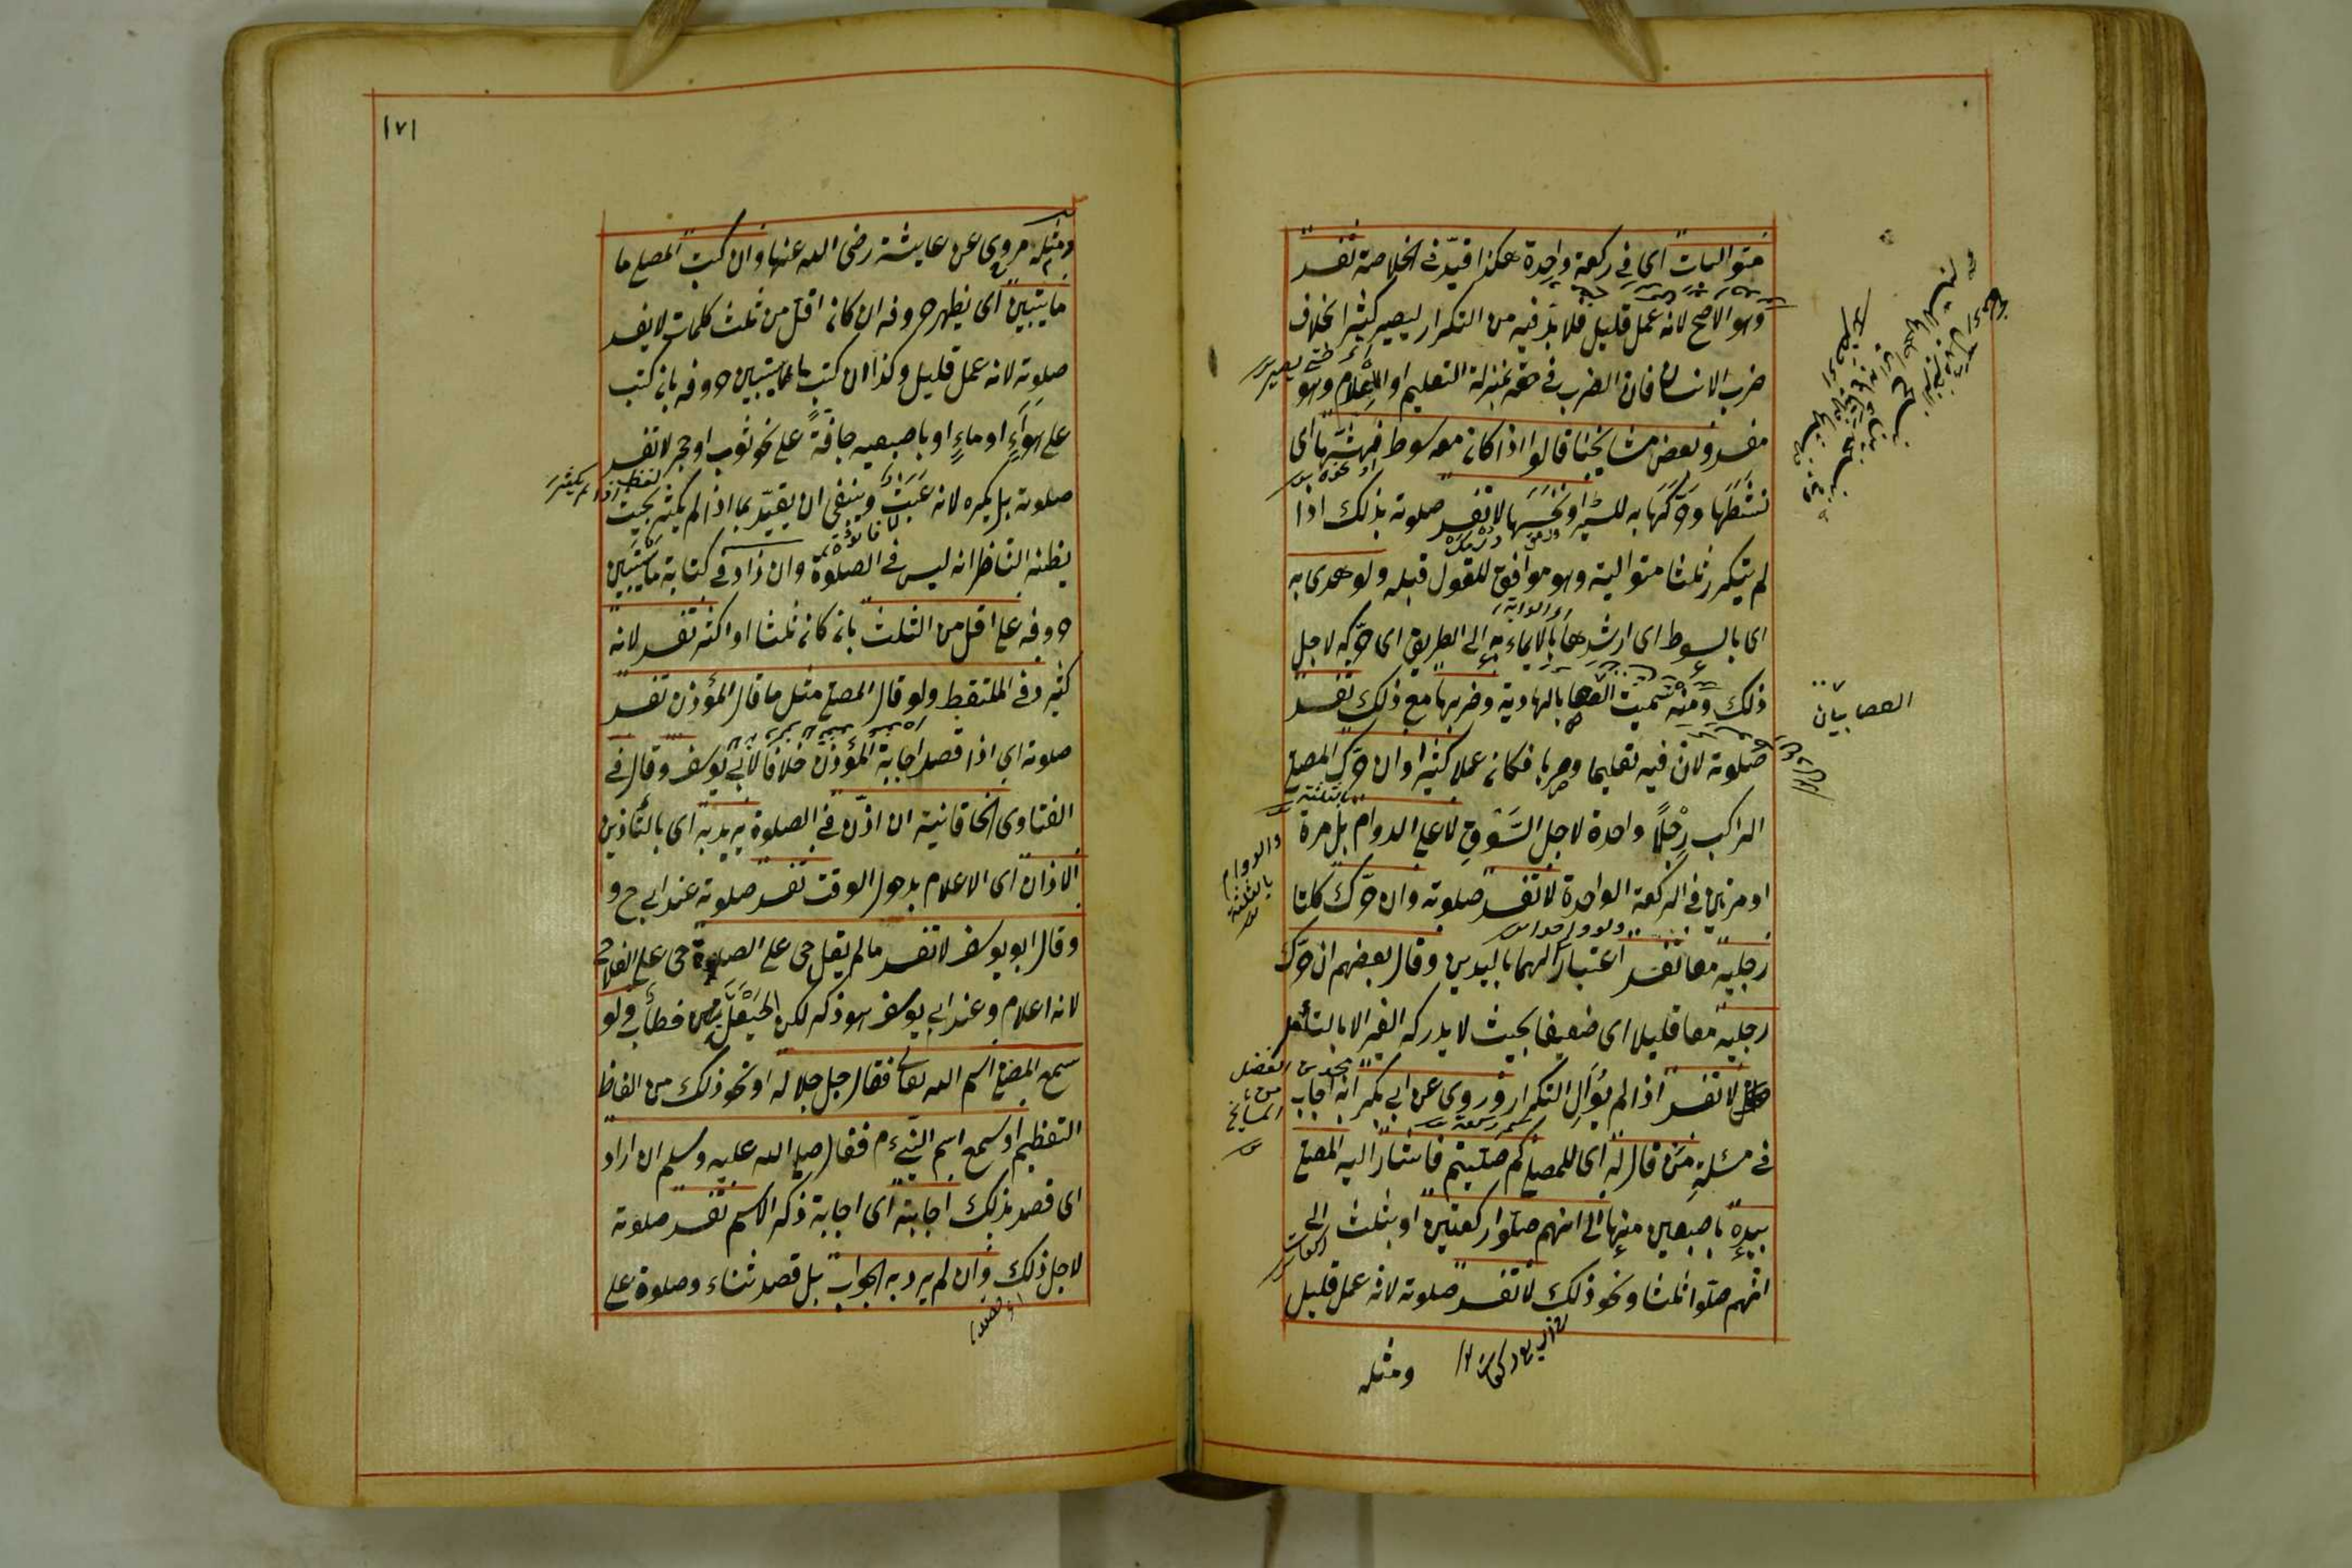 متواليات اى فى ركعة واحدة هكذا قيد فى الخلاصة تفسد
وهو الاصح لانه عمل قليل فلا بد فيه من التكرار ليصير كثيرا بخلاف
ضرب الانسان فان الضرب فى حقه بمنزلة التعليم او الاعلام وهو
مفسد وبعض مشايخنا قالوا اذا كان معه سوط فهشّها اى
نشّطها وحرّكها به للسير او نخسها لا تفسد صلوته بذلك اذا
لم يتكرر ثلثا متوالية وهو موافق للقول قبله ولو هدى به
اى بالسوط اى ارشدها بالايماء به الى الطريق اى حركه لاجل
ذلك ومنه سميت العصا بالهادية وضربها مع ذلك تفسد
صلوته لان فيه تعليما وضربا فكان عملا كثيرا وان حرك المصلى
الراكب رِجْلًا واحدة لاجل السَّوْقِ لا على الدوام بل مرة
او مرتين فى الركعة الواحدة لا تفسد صلوته وان حرك كلتا
رجليه معا تفسد اعتبارا لهما باليدين وقال بعضهم ان حرك
رجليه معا قليلا اى ضعيفا بحيث لا يدركه الغير الا بالتأمل
لا تفسد اذا لم يوال التكرار وروى عن ابى بكر انه اجاب
فى مسئلة من قال له اى للمصلى كم صليتم فاشار اليه المصلى
بيده باصبعين منها الى انهم صلوا ركعتين او بثلث الى
انهم صلوا ثلثا ونحو ذلك لا تفسد صلوته لانه عمل قليل
ومثله
العصا بيان
والدوام
بالثلثة
١٧١
ومثله مروى عن عايشة رضى الله عنها وان كتب المصلى ما
ما يتبين اى يظهر حروفه ان كان اقل من ثلث كلمات لا يفسد
صلوته لانه عمل قليل وكذا ان كتب ما لا يستبين حروفه بان كتب
على هواءٍ او ماءٍ او باصبعيه جافةً على نحو ثوب او حجر لا تفسد
صلوته بل يكره لانه عبث وينبغى ان يقيّد بما اذا لم يكثر بحيث
يظنه الناظر انه ليس فى الصلوة وان زاد فى كتابة ما يستبين
حروفه على اقل من الثلث بان كان ثلثا او اكثر تفسد لانه
كثير وفى الملتقط ولو قال المصلى مثل ما قال المؤذن تفسد
صلوته اى اذا قصد اجابة المؤذن خلافا لابى يوسف وقال فى
الفتاوى الخاقانية ان اذّن فى الصلوة يريد به اى بالتأذين
الاذان اى الاعلام بدخول الوقت تفسد صلوته عند ابى ح و
وقال ابو يوسف لا تفسد ما لم يقل حى على الصلوة حى على الفلاح
لانه اعلام وعند ابى يوسف هو ذكر لكن الحيعلتين خطاب ولو
سمع المصلى اسم الله تعالى فقال جل جلاله او نحو ذلك من الفاظ
التعظيم او سمع اسم النبى ءم فقال صلى الله عليه وسلم ان اراد
اى قصد بذلك اجابته اى اجابة ذكر الاسم تفسد صلوته
لاجل ذلك وان لم يرد به الجواب بل قصد ثناء وصلوة على